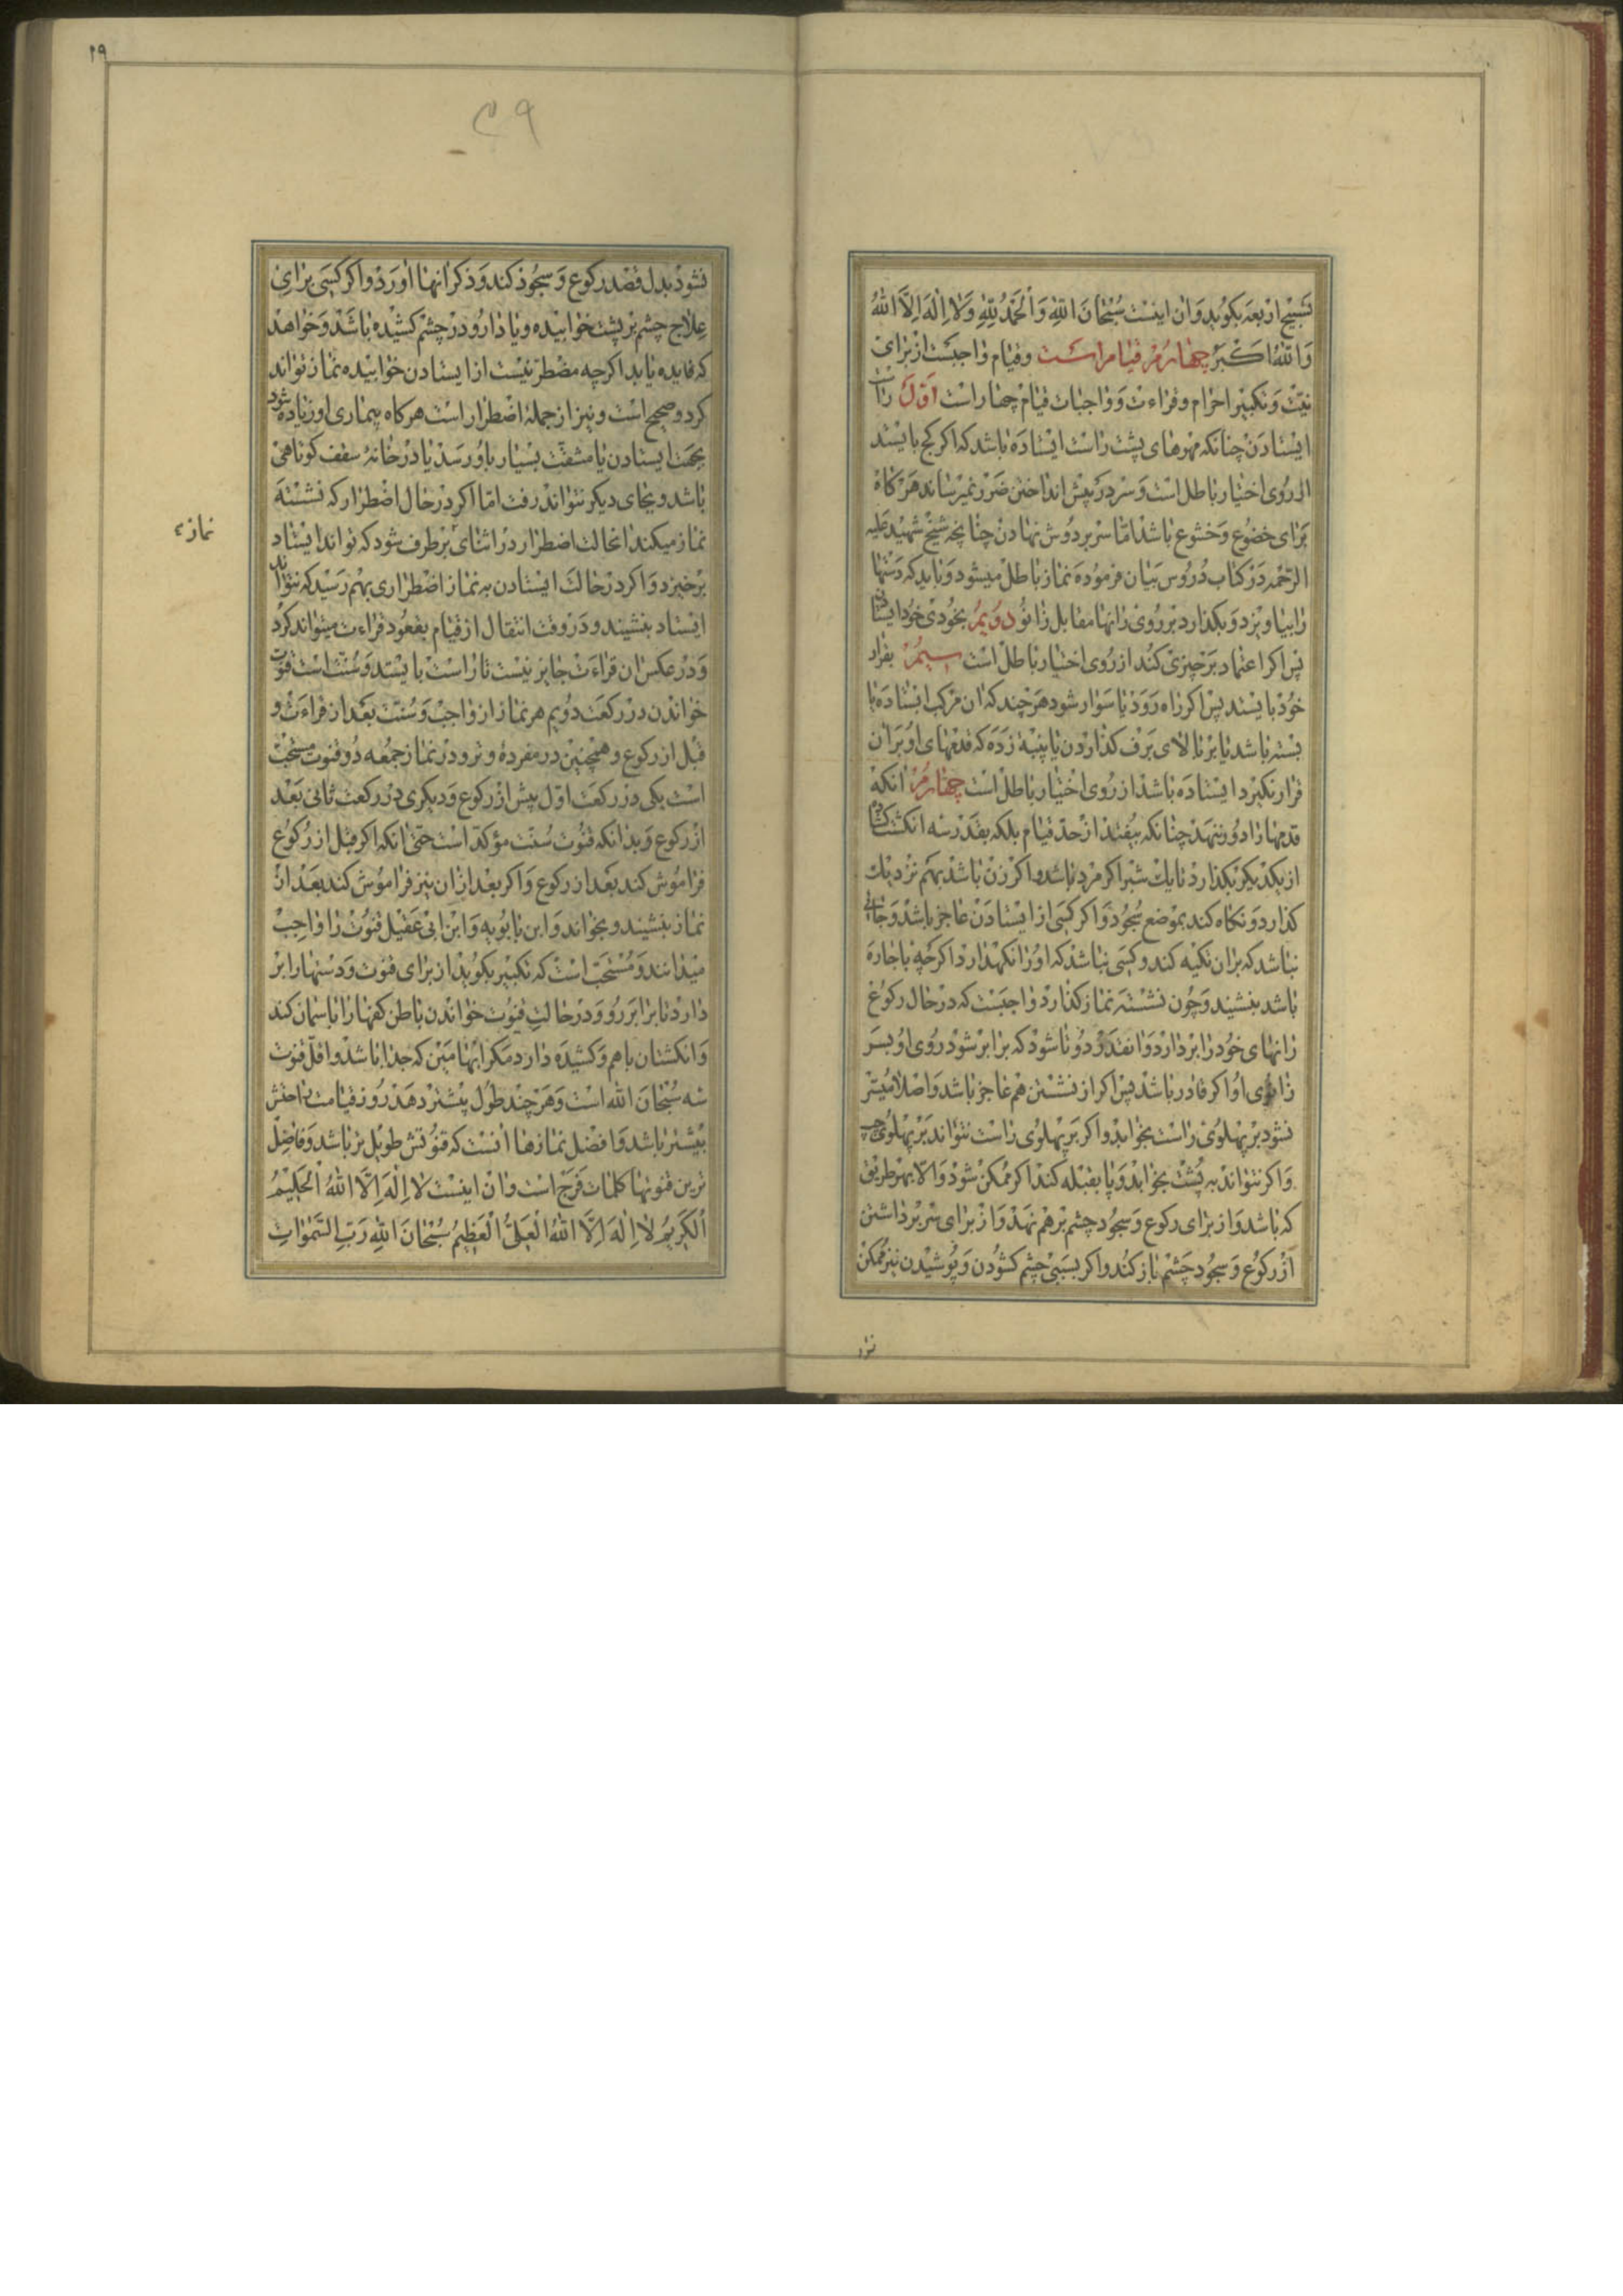 تسبیح اربعه بکوید و ان اینست سُبْحٰانَ اللّٰهِ وَ الْحَمْدُ لِلّٰهِ وَ لٰا اِلٰهَ اِلَّا اللّٰهُ
وَ اللّٰهُ اَکْبَرُ چهارم قیام است و قیام واجبست از برای
نیّت و تکبیر احرام و قراءت و واجبات قیام چهار است اوّل راست
ایستادن چنانکه مهرهای پشت راست ایستاده باشد که اکر کج بایستد
از روی اختیار باطل است و سر در پیش انداختن ضرر نمیرساند هرکاه
برای خضوع و خشوع باشد امّا سر بر دوش نهادن چنانچه شیخ شهید علیه
الرّحمه در کتاب دروس بیان فرموده نماز باطل میشود و باید که دستها
را بیاویزد و بکذارد بر روی رانها مقابل زانو دویم بخودی خود ایستادن
پس اکر اعتماد بر چیزی کند از روی اختیار باطل است سیم بقرار
خود بایستد پس اکر راه رود یا سوار شود هر چند که ان مرکب ایستاده یا
بسته باشد یا بر بالای برف کذاردن یا پنبه زده که قدمهای او بر ان
قرار نکیرد ایستاده باشد از روی اختیار باطل است چهارم انکه
قدمها را دور ننهد چنانکه بیفتد از حدّ قیام بلکه بقدر سه انکشت کشاده
از یکدیکر بکذارد تا یک شبر اکر مرد باشد و اکر زن باشد بهم نزدیک
کذارد و نکاه کند بموضع سجود و اکر کسی از ایستادن عاجز باشد و جائی
نباشد که بران تکیه کند و کسی نباشد که او را نکهدارد اکرچه باجاره
باشد بنشیند و چون نشسته نماز کذارد واجبست که در حال رکوع
رانهای خود را بردارد و انقدر دوتا شود که برابر شود روی او بسر
زانوی او اکر قادر باشد پس اکر از نشستن هم عاجز باشد و اصلا میسّر
نشود بر پهلوی راست بخوابد و اکر بر پهلوی راست نتواند بر پهلوی چپ
و اکر نتواند به پشت بخوابد و پا بقبله کند اکر ممکن شود و الّا بهر طریق
که باشد و از برای رکوع و سجود چشم بر هم نهد و از برای سر برداشتن
از رکوع و سجود چشم باز کند و اکر بسببی چشم کشودن و پوشیدن نیز ممکن
۲۹
۲۹
نشود بدل قصد رکوع و سجود کند و ذکر انها اورد و اکر کسی برای
علاج چشم بر پشت خوابیده و یا دارو در چشم کشیده باشد و خواهد
که فایده یابد اکرچه مضطر نیست از ایستادن خوابیده نماز تواند
کرد و صحیح است و نیز از جملهٔ اضطرار است هرکاه بیماری او زیاده شود
بجهت ایستادن یا مشقّت بسیار باو رسد یا در خانهٔ سقف کوتاهی
باشد و بجای دیکر نتواند رفت امّا اکر در حال اضطرار که نشسته
نماز میکند انحالت اضطرار در اثنای بر طرف شود که تواند ایستاد
نماز
برخیزد و اکر در حالت ایستادن به نماز اضطراری بهم رسید که نتواند
ایستاد بنشیند و در وقت انتقال از قیام بقعود قراءت میتواند کرد
و در عکس ان قراءت جایز نیست تا راست بایستد و سنّت است قنوت
خواندن در رکعت دویم هر نماز از واجب و سنّت بعد از قراءت و
قبل از رکوع و همچنین در مفردهٔ وتر و در نماز جمعه دو قنوت مستحب
است یکی در رکعت اوّل پیش از رکوع و دیکری در رکعت ثانی بعد
از رکوع و بدانکه قنوت سنّت مؤکد است حتّی انکه اکر قبل از رکوع
فراموش کند بعد از رکوع و اکر بعد از ان نیز فراموش کند بعد از
نماز بنشیند و بخواند و ابن بابویه و ابن ابی عقیل قنوت را واجب
میدانند و مستحبّ است که تکبیر بکوید از برای قنوت و دستها را بر
دارد تا برابر رو و در حالت قنوت خواندن باطن کفها را باسمان کند
و انکشتان باهم و کشیده دارد مکر ابهامین که جدا باشد و اقلّ قنوت
سه سبحان اللّٰه است و هر چند طول بیشتر دهد روز قیامت راحتش
بیشتر باشد و افضل نمازها انست که قنوتش طویل تر باشد و فاضل
ترین قنوتها کلمات فرج است و ان اینست لٰا اِلٰهَ اِلَّا اللّٰهُ الْحَلِیْمُ
الْکَرِیْمُ لٰا اِلٰهَ اِلَّا اللّٰهُ الْعَلِیُّ الْعَظِیْمُ سُبْحٰانَ اللّٰهِ رَبِّ السَّمٰوٰاتِ